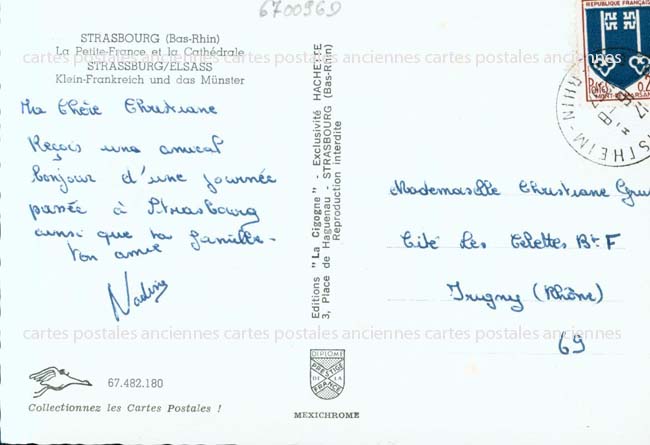 6700969
STRASBOURG (Bas-Rhin)
La Petite-France et la Cathédrale
STRASSBURG/ELSASS
Klein-Frankreich und das Münster
Ma Chère Christiane
Reçois una amical
bonjour d'une journée
passée à Strasbourg
ainsi que ta famille.
Ton amie
Nadine
67.482.180
Collectionnez les Cartes Postales !
Editions "La Cigogne" - Exclusivité HACHETTE
3, Place de Haguenau - STRASBOURG (Bas-Rhin)
Reproduction interdite
DIPLOME
PRESTIGE
DE LA
FRANCE
MEXICHROME
REPUBLIQUE FRANÇAISE
POSTES 0,2
MONT-DE-MARSAN
RHIN
Mademoiselle Christiane
Cité Les Bt F
Irigny (Rhône)
69
cartes postales anciennes cartes postales anciennes cartes postales anciennes
cartes postales anciennes cartes postales anciennes cartes postales anciennes